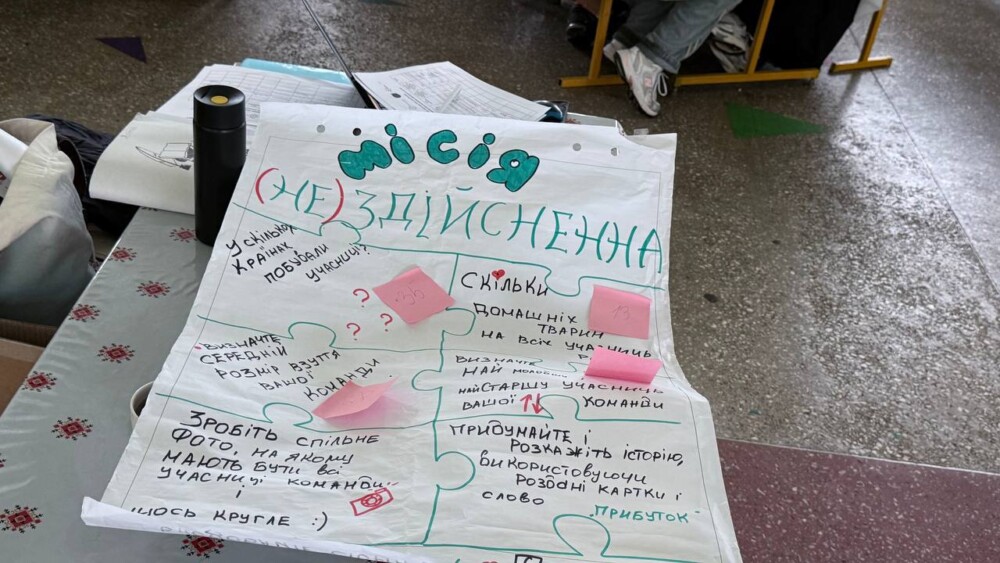 місія
(НЕ) ЗДІЙСНЕННА
У СКІЛЬКОХ
КРАЇНАХ
ПОБУВАЛИ
УЧАСНИЦІ?
? ? ?
35
СКІЛЬКИ
ДОМАШНІХ
ТВАРИН
НА ВСІХ УЧАСНИЦЬ
13
ВИЗНАЧТЕ
СЕРЕДНІЙ
РОЗМІР ВЗУТТЯ
ВАШОЇ
КОМАНДИ
ВИЗНАЧТЕ
НАЙСТАРШУ УЧАСНИЦЬ
ВАШОЇ КОМАНДИ
ЗРОБІТЬ СПІЛЬНЕ
ФОТО, НА ЯКОМУ
МАЮТЬ БУТИ ВСІ
УЧАСНИЦІ КОМАНДИ
І
ЩОСЬ КРУГЛЕ :)
ПРИДУМАЙТЕ І
РОЗКАЖІТЬ ІСТОРІЮ,
ВИКОРИСТОВУЮЧИ
РОЗДАНІ КАРТКИ І
СЛОВО
"ПРИБУТОК"